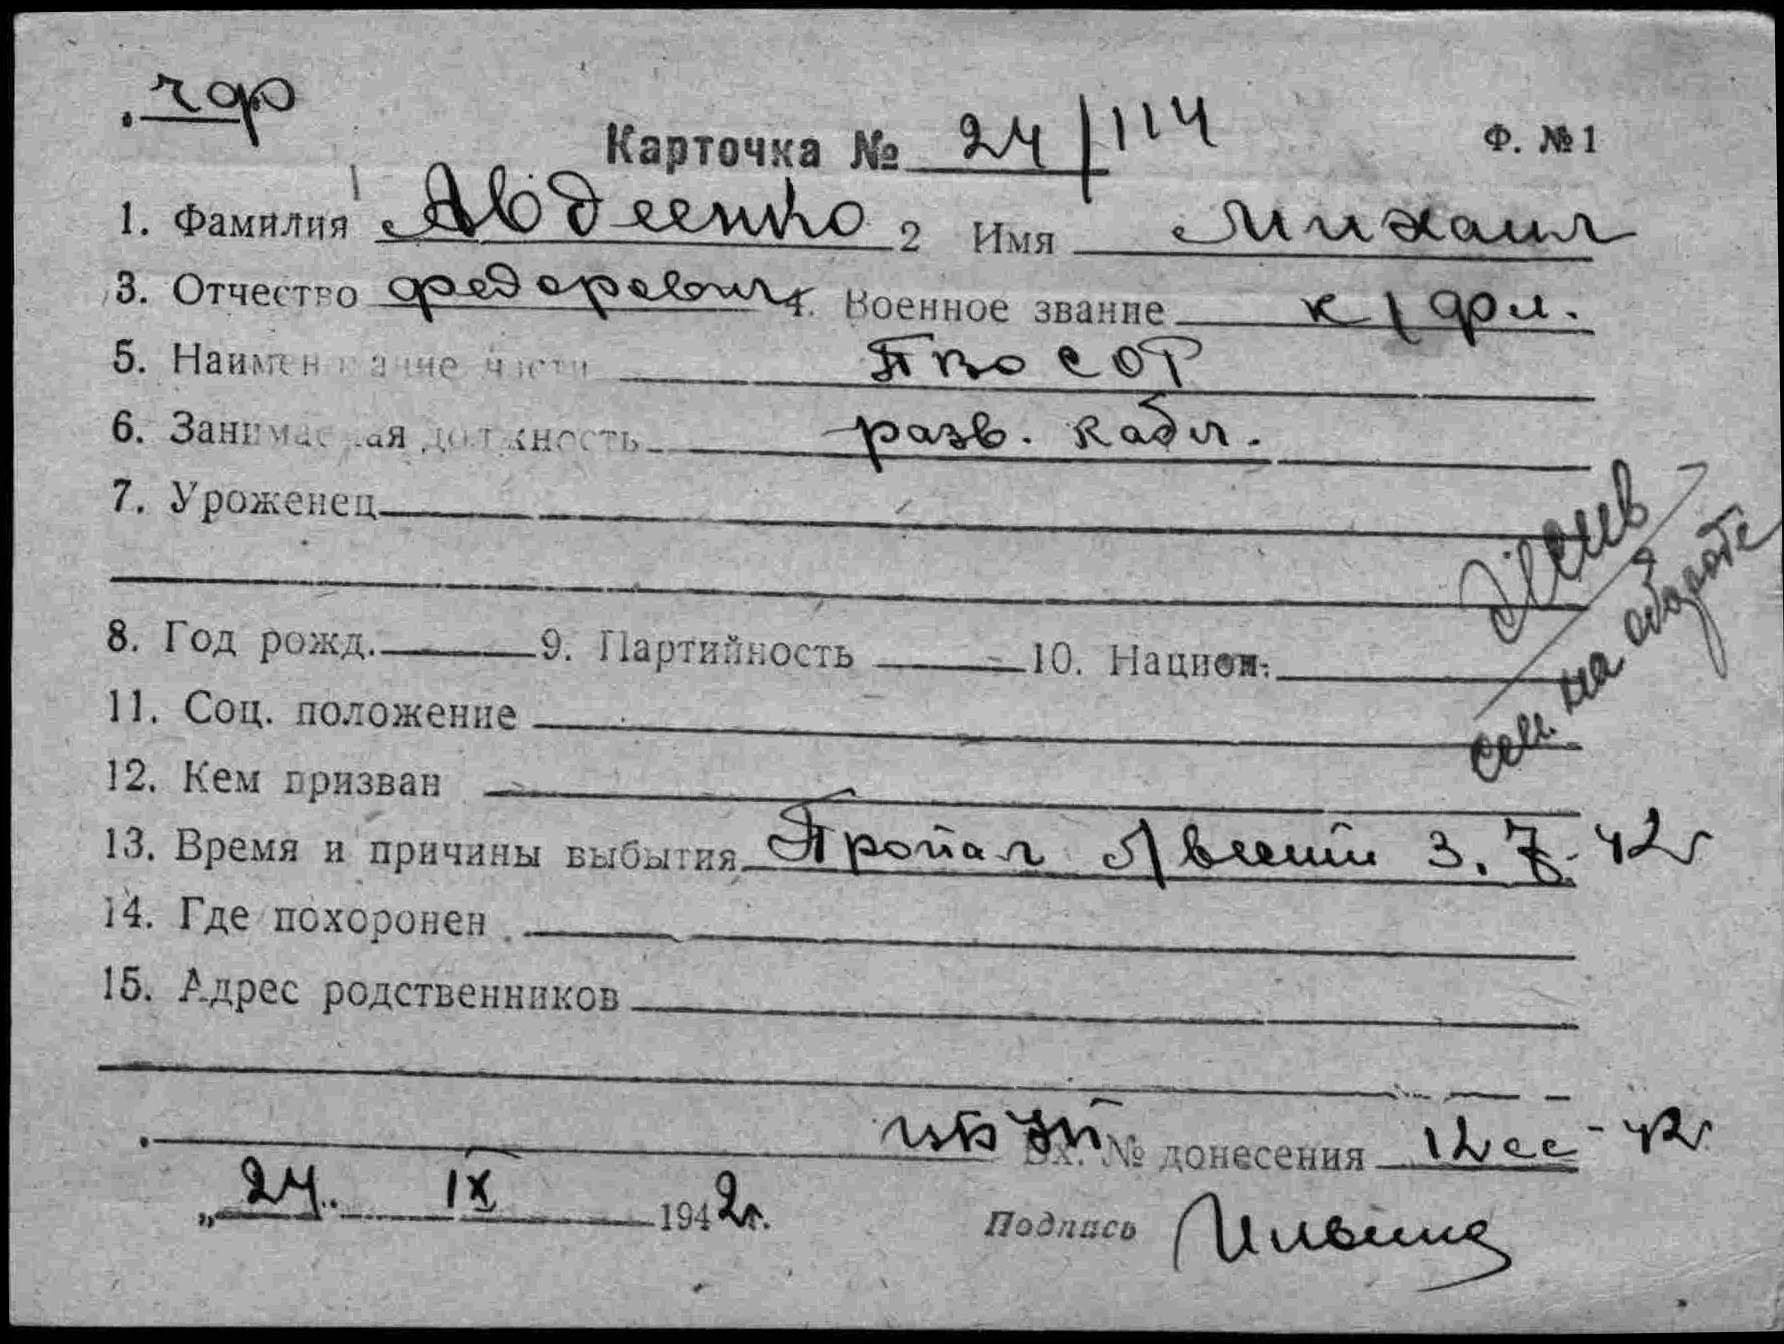 чф
Карточка № 24/114 Ф. № 1
1. Фамилия Авдеенко 2 Имя Михаил
3. Отчество Федорович 4. Военное звание к/фл.
5. Наименование части ПВО СОР
6. Занимаемая должность разв. кабл.
7. Уроженец
Жив
см. на обороте
8. Год рожд. 9. Партийность 10. Национ.
11. Соц. положение
12. Кем призван
13. Время и причины выбытия Пропал б/вести 3.7.42г
14. Где похоронен
15. Адрес родственников
Вх. № донесения 12сс-42г
„24. IX 1942г.
Подпись Ильина